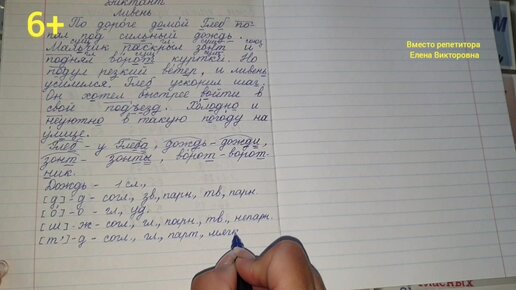 6+
Вместо репетитора
Елена Викторовна
диктант
Ливень
По дороге домой Глеб по-
пал под сильный дождь.
сущ. гл. сущ. союз
Мальчик раскрыл зонт и
поднял ворот куртки. Но
подул резкий ветер, и ливень
усилился. Глеб ускорил шаг.
Он хотел быстрее войти в
свой подъезд. Холодно и
неуютно в такую погоду на
улице.
Глеб - у Глеба, дождь - дожди,
зонт - зонты, ворот - ворот-
ник.
Дождь - 1 сл.,
[д] - д - согл., зв., парн., тв., парн.
[о] - о - гл., уд.
[ш] - ж - согл., гл., парн., тв., непарн.
[т'] - д - согл., гл., парн., мягк
гласных